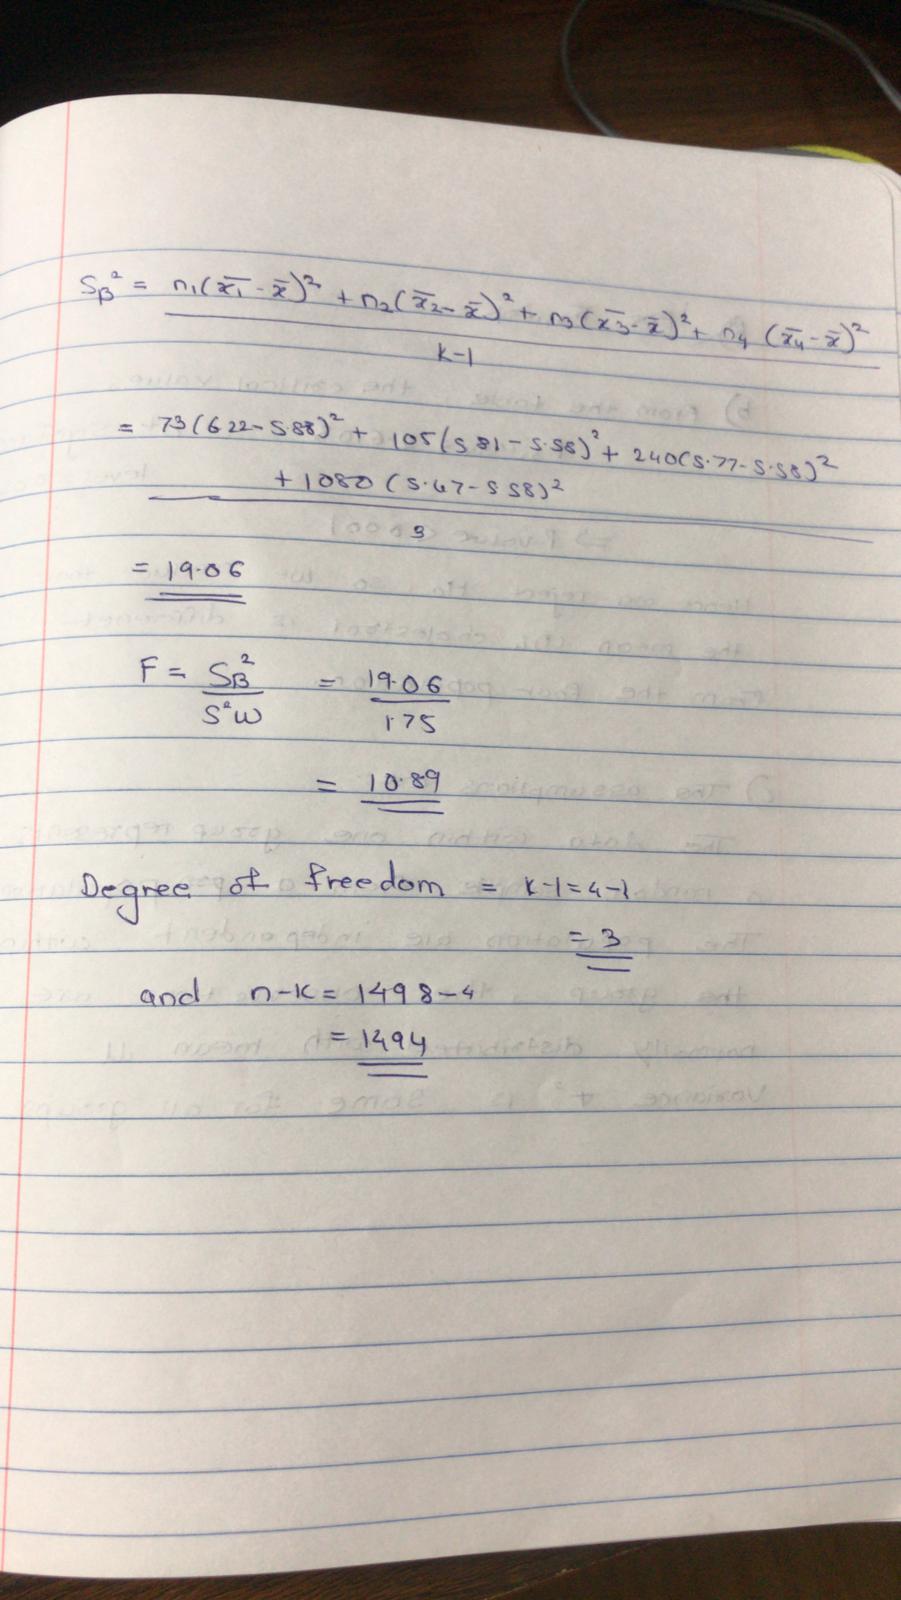 S_B² = n₁(x̄₁ - x̄)² + n₂(x̄₂ - x̄)² + n₃(x̄₃ - x̄)² + n₄ (x̄₄ - x̄)²
k-1
= 73(6.22 - 5.88)² + 105(5.81 - 5.58)² + 240(5.77 - 5.58)²
+ 1080 (5.47 - 5.58)²
3
= 19.06
F = S_B² / S²w = 19.06 / 1.75
= 10.89
Degree of freedom = k-1 = 4-1
= 3
and n-k = 1498-4
= 1494